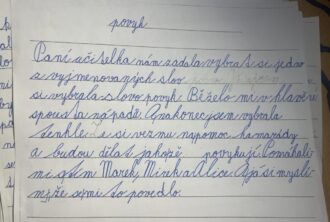 povyk
Paní učitelka nám zadala vybrat si jedno
z vyjmenovaných slov
si vybrala slovo povyk. Běželo mi v hlavě
spousta nápadů. A nakonec jsem vybrala
tenhle. si vezmu na pomoc kamarády
a budou dělat jakože povykují. Pomáhali
mi s tím Marek, Nink a Alice. A já si myslí-
m, že se mi to povedlo.